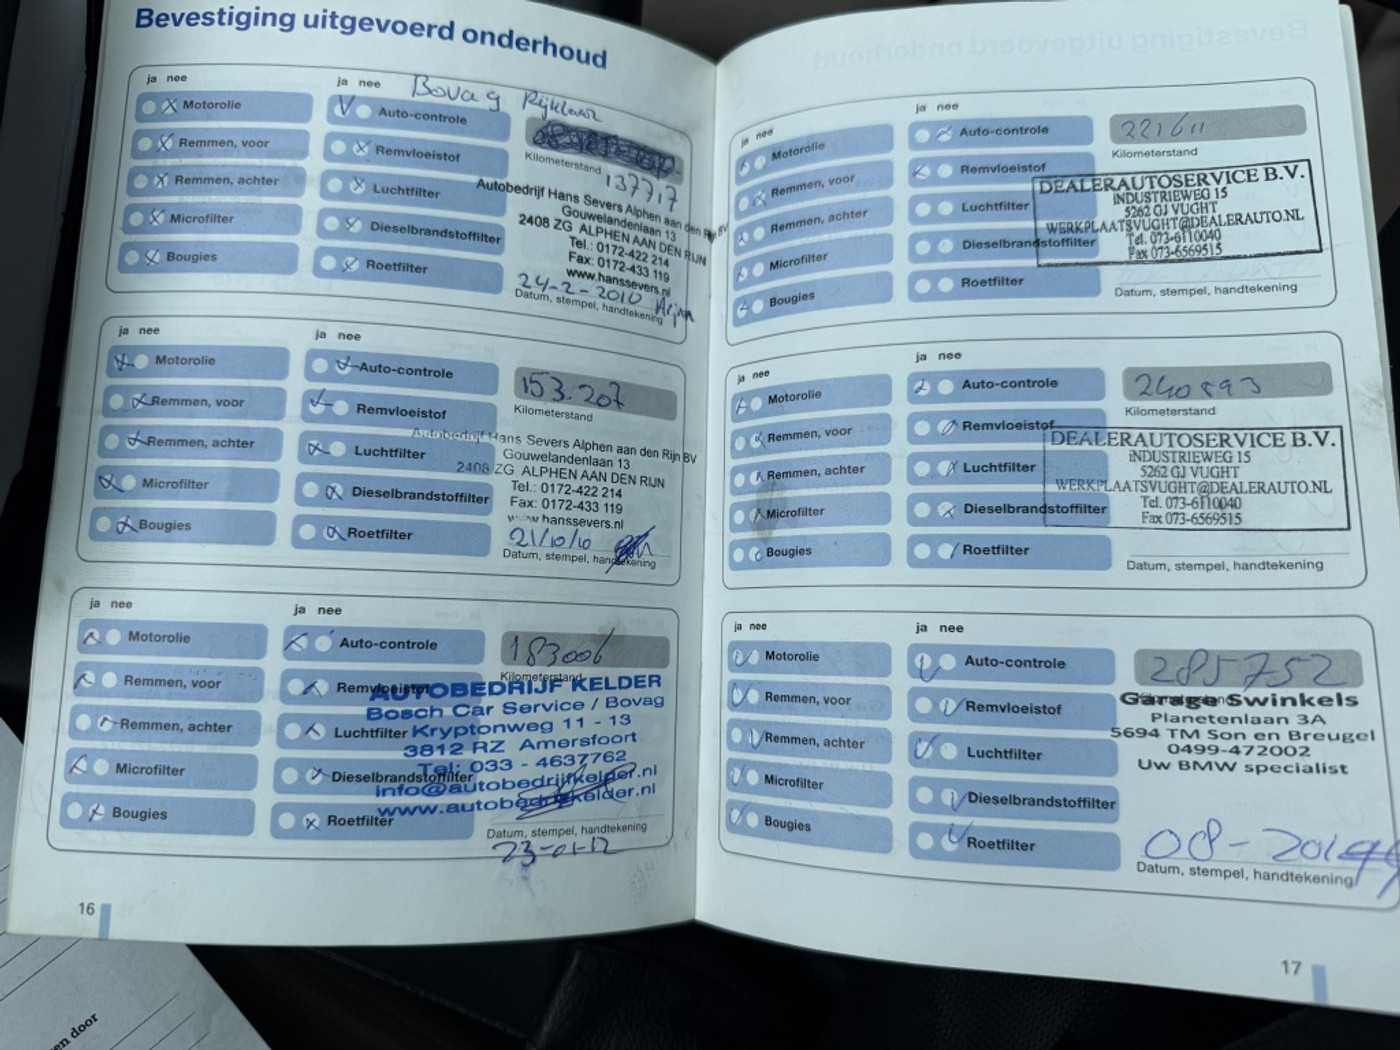 Bevestiging uitgevoerd onderhoud
ja nee
Motorolie
Remmen, voor
Remmen, achter
Microfilter
Bougies
ja nee
Bovag Rijklaar
Auto-controle
Remvloeistof
Luchtfilter
Dieselbrandstoffilter
Roetfilter
Kilometerstand
137717
Autobedrijf Hans Severs Alphen aan den Rijn BV
Gouwelandenlaan 13
2408 ZG ALPHEN AAN DEN RIJN
Tel.: 0172-422 214
Fax: 0172-433 119
www.hanssevers.nl
24-2-2010
Datum, stempel, handtekening
ja nee
Motorolie
Remmen, voor
Remmen, achter
Microfilter
Bougies
ja nee
Auto-controle
Remvloeistof
Luchtfilter
Dieselbrandstoffilter
Roetfilter
153.207
Kilometerstand
Autobedrijf Hans Severs Alphen aan den Rijn BV
Gouwelandenlaan 13
2408 ZG ALPHEN AAN DEN RIJN
Tel.: 0172-422 214
Fax: 0172-433 119
www.hanssevers.nl
21/10/10
Datum, stempel, handtekening
ja nee
Motorolie
Remmen, voor
Remmen, achter
Microfilter
Bougies
ja nee
Auto-controle
Remvloeistof
Luchtfilter
Dieselbrandstoffilter
Roetfilter
183006
Kilometerstand
AUTOBEDRIJF KELDER
Bosch Car Service / Bovag
Kryptonweg 11 - 13
3812 RZ Amersfoort
Tel: 033 - 4637762
info@autobedrijfkelder.nl
www.autobedrijfkelder.nl
Datum, stempel, handtekening
23-01-12
16
ja nee
Motorolie
Remmen, voor
Remmen, achter
Microfilter
Bougies
ja nee
Auto-controle
Remvloeistof
Luchtfilter
Dieselbrandstoffilter
Roetfilter
221611
Kilometerstand
DEALERAUTOSERVICE B.V.
INDUSTRIEWEG 15
5262 GJ VUGHT
WERKPLAATSVUGHT@DEALERAUTO.NL
Tel. 073-6110040
Fax 073-6569515
Datum, stempel, handtekening
ja nee
Motorolie
Remmen, voor
Remmen, achter
Microfilter
Bougies
ja nee
Auto-controle
Remvloeistof
Luchtfilter
Dieselbrandstoffilter
Roetfilter
240893
Kilometerstand
DEALERAUTOSERVICE B.V.
INDUSTRIEWEG 15
5262 GJ VUGHT
WERKPLAATSVUGHT@DEALERAUTO.NL
Tel. 073-6110040
Fax 073-6569515
Datum, stempel, handtekening
ja nee
Motorolie
Remmen, voor
Remmen, achter
Microfilter
Bougies
ja nee
Auto-controle
Remvloeistof
Luchtfilter
Dieselbrandstoffilter
Roetfilter
285752
Garage Swinkels
Planetenlaan 3A
5694 TM Son en Breugel
0499-472002
Uw BMW specialist
08-2014
Datum, stempel, handtekening
17
en door